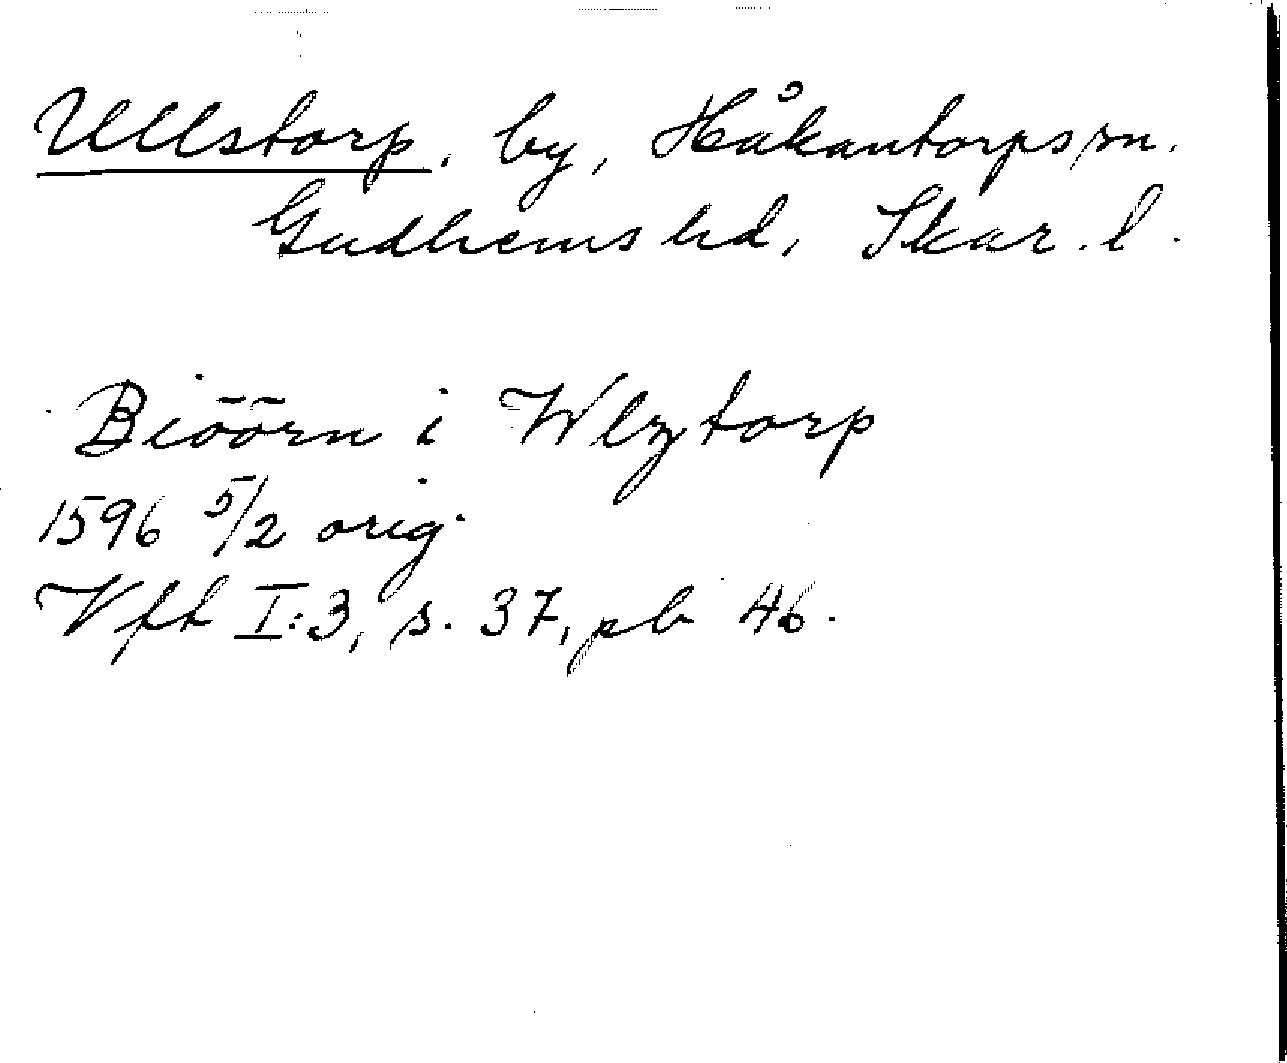 Ullstorp. by, Håkantorps sn.
Gudhems hd, Skar. l.
Biöörn i Wlztorp
1596 5/2 orig.
Vft I:3, s. 37, pb 46.